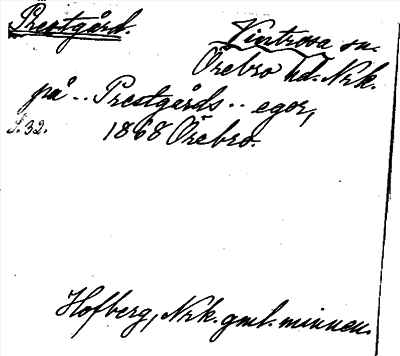 Prestgård. Vintrosa sn.
Örebro hd. Nrk.
på .. Prestgårds .. egor,
s. 32. 1868 Örebro.
Hofberg, Nrk. gml. minnen.